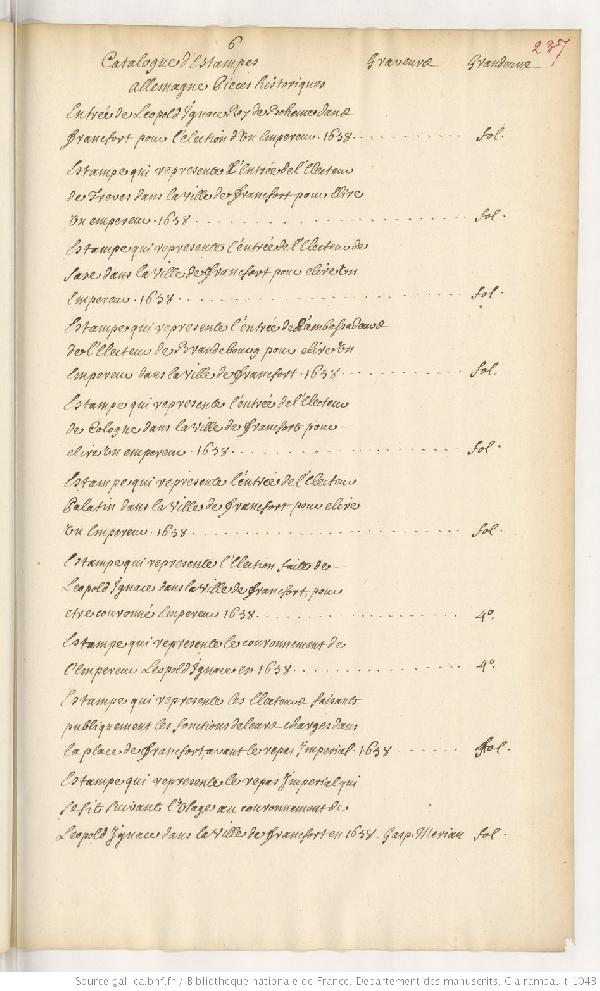 6
237
Catalogue d'Estampes Graveurs Grandeurs
allemagne Pieces historiques
Entrée de Leopold Ignace Roy de Boheme dans
francfort pour l'election d'un Empereur. 1658. fol.
Estampe qui represente l'Entrée de l'Electeur
de Treves dans la ville de francfort pour Elire
un empereur. 1658 fol.
Estampe qui represente l'entrée de l'Electeur de
Saxe dans la ville de francfort pour elire un
Empereur. 1658. fol.
Estampe qui represente l'entrée de l'ambassadeurs
de l'Electeur de Brandebourg pour elire un
Empereur dans la ville de francfort. 1658 fol.
Estampe qui represente l'entrée de l'Electeur
de Cologne dans la ville de francfort pour
elire un empereur. 1658. fol.
Estampe qui represente l'entrée de l'Electeur
Palatin dans la ville de francfort pour elire
un Empereur. 1658. fol.
Estampe qui represente l'Election faite de
Leopold Ignace dans la ville de francfort pour
etre couronné Empereur 1658. 4º.
Estampe qui represente le couronnement de
l'Empereur Leopold Ignace en 1658 4º.
Estampe qui represente les Electeurs faisants
publiquement les fonctions de leurs charges dans
la place de francfort avant le repas Imperial. 1658 fol.
Estampe qui represente le repas Imperial qui
se fit suivant l'Usage au couronnement de
Leopold Ignace dans la ville de francfort en 1658. Gasp. Merian fol.
Source gallica.bnf.fr / Bibliothèque nationale de France. Département des manuscrits. Clairambault 1048